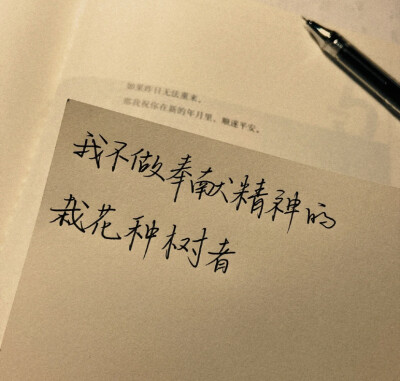 如果昨日无法重来，
那我祝你在新的年月里，顺遂平安。
我不做奉献精神的
栽花种树者